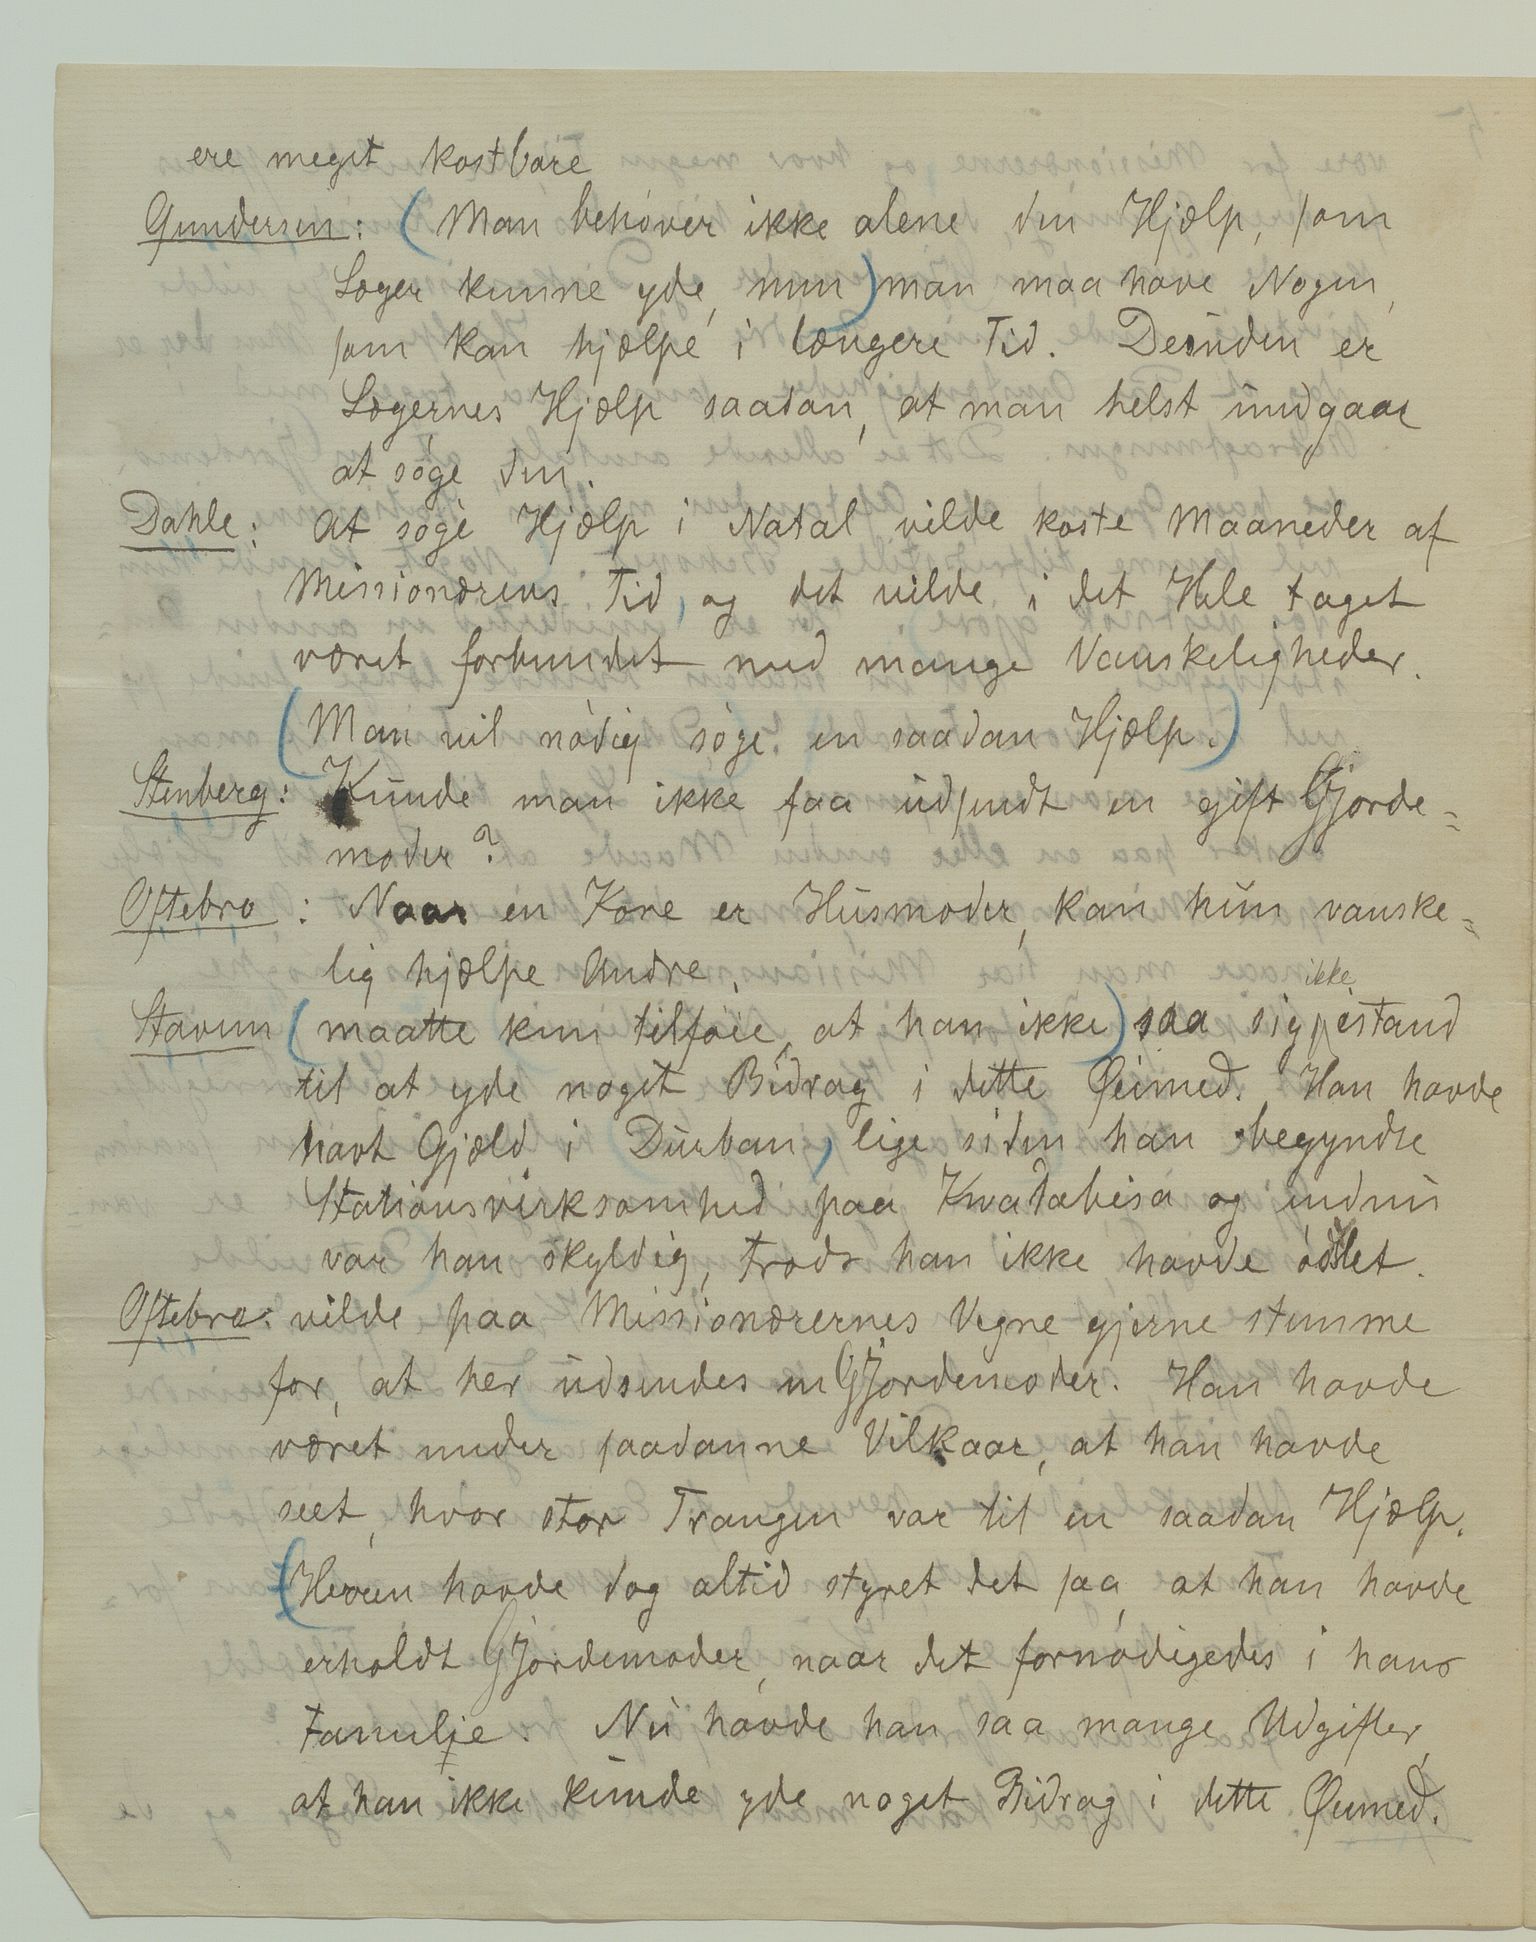 ere meget kostbare
Gundersen: (Man behøver ikke alene den Hjælp, som
Læger kunne yde, men) man maa have Nogen,
som kan hjælpe i længere Tid. Desuden er
Lægernes Hjælp saadan, at man helst undgaar
at søge den.
Dahle: At søge Hjælp i Natal vilde koste Maaneder af
Missionærens Tid, og det vilde i det Hele taget
været forbundet med mange Vanskeligheder.
(Man vil nødig søge en saadan Hjælp.)
Stenberg: Kunde man ikke faa udsendt en gift Gjorde=
moder?
Oftebro: Naar en Kone er Husmoder, kan hun vanske=
lig hjælpe Andre.
ikke
Stavem (maatte kun tilføie, at han ikke) saa sig istand
til at yde noget Bidrag i dette Øiemed. Han havde
havt Gjæld i Durban, lige siden han begyndte
Stationsvirksomhed paa Kwatabisa og endnu
var han skyldig, trods han ikke havde ødslet.
Oftebro: vilde paa Missionærernes Vegne gjerne stemme
for, at her udsendes en Gjordemoder. Han havde
været under saadanne Vilkaar, at han havde
seet, hvor stor Trangen var til en saadan Hjælp.
(Herren havde dog altid styret det saa, at han havde
erholdt Gjordemoder, naar det fornødigedes i hans
Familie. Nu havde han saa mange Udgifter,
at han ikke kunde yde noget Bidrag i dette Øiemed.